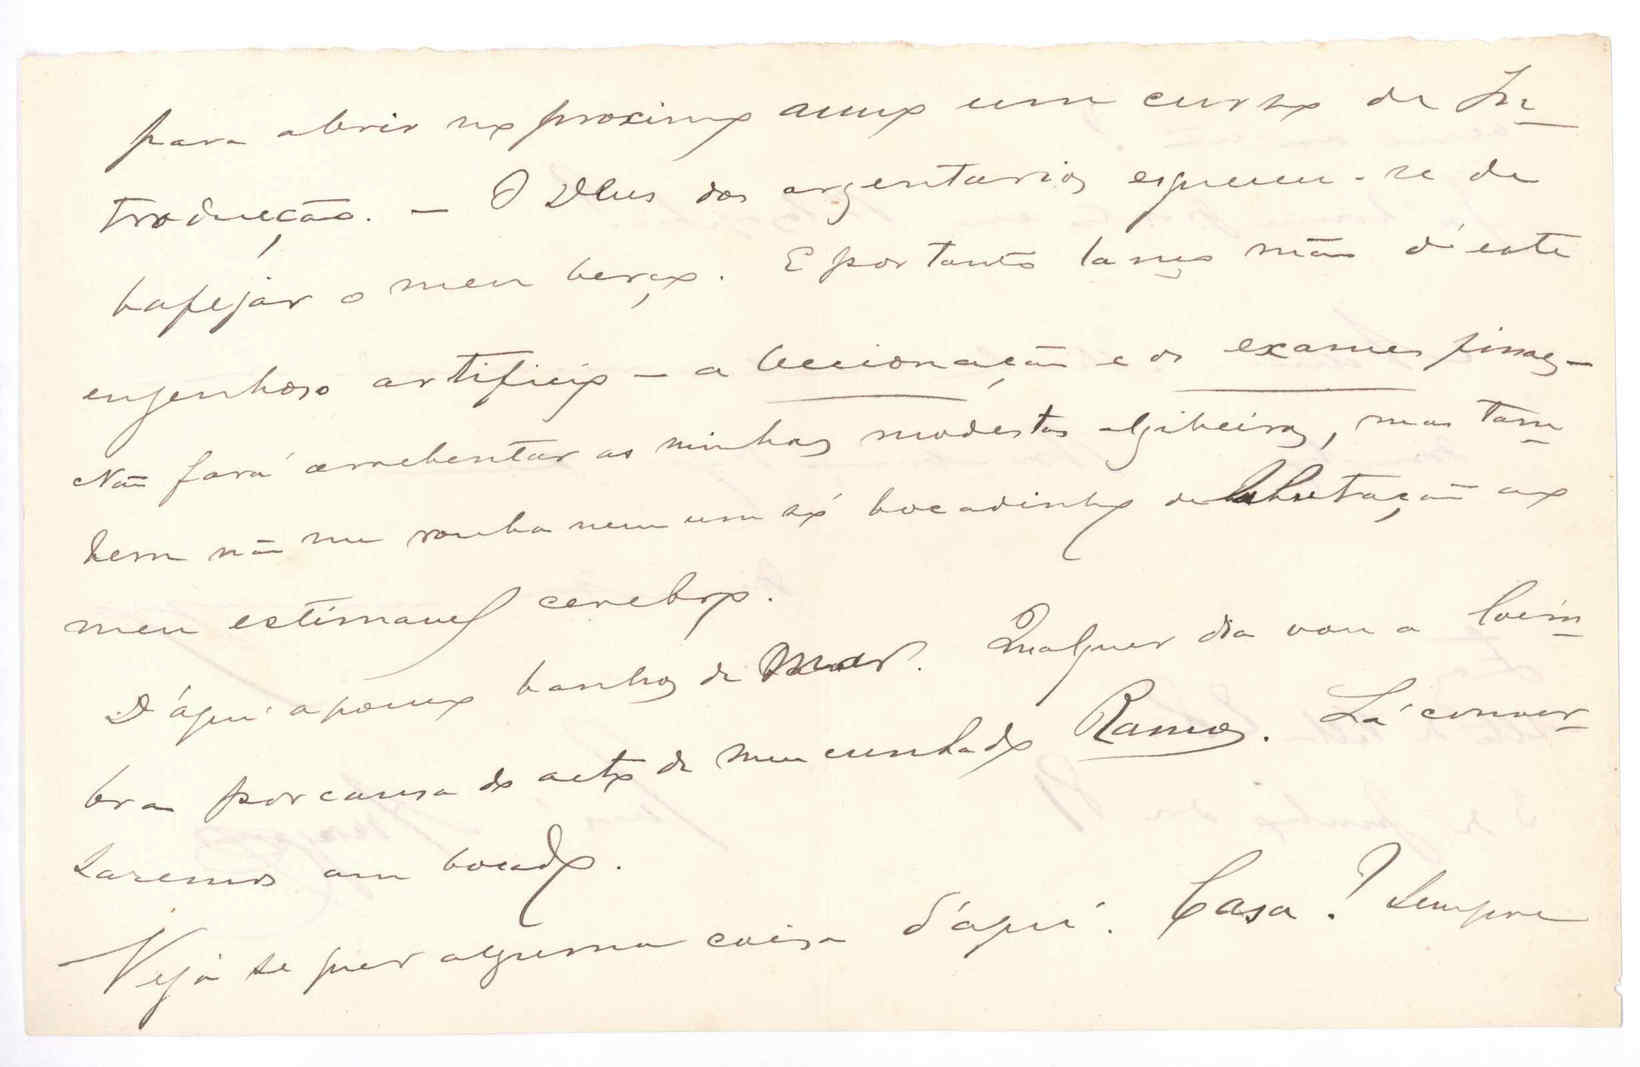 para abrir no proximo anno um curso de In-
troducção. — O Deus dos argentarios esqueceu-se de
bafejar o meu berço. E portanto lanço mão d'este
engenhoso artificio — a leccionação e os exames finaes —
Não fará arrebentar as minhas modestas algibeiras, mas tam-
bem não me rouba nem um só bocadinho de substancia ao
meu estimavel cerebro.
D'áqui a pouco banhos de mar. Qualquer dia vou a Coim-
bra por causa do acto de meu cunhado Ramos. Lá conver-
saremos um bocado.
Veja se quer alguma coisa d'aqui. Casa? Sempre